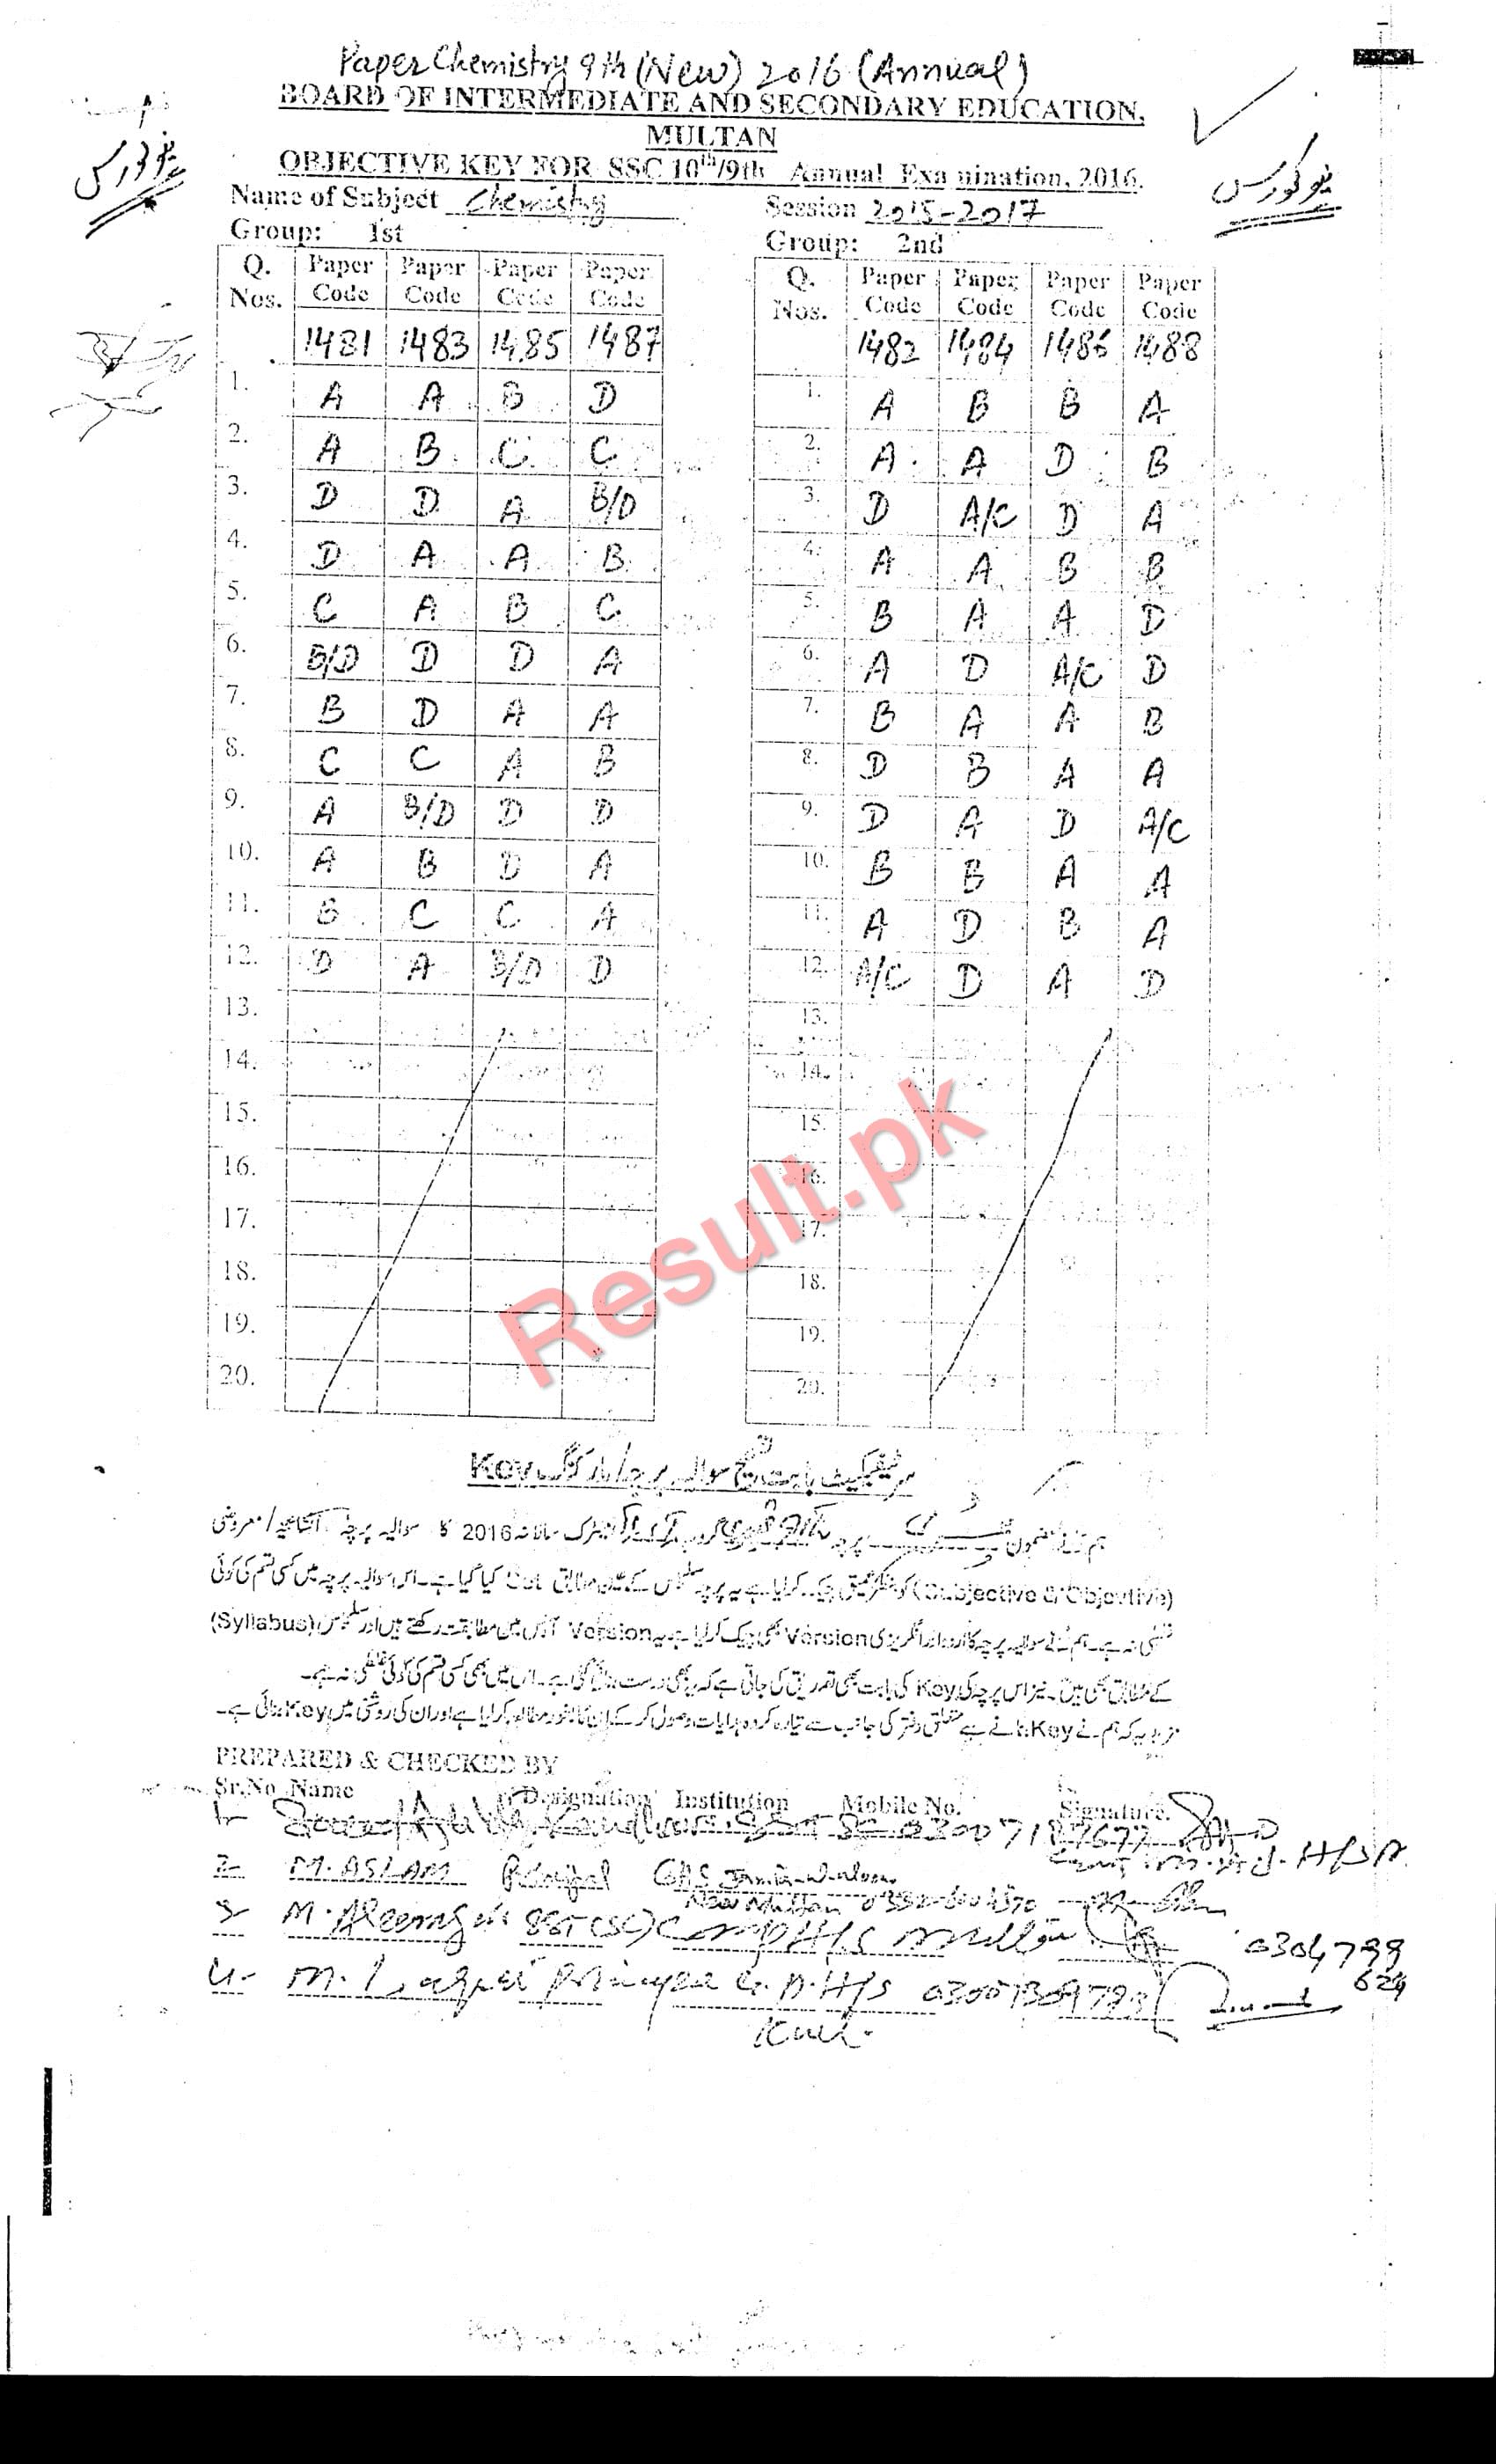 Paper Chemistry 9th (New) 2016 (Annual)
BOARD OF INTERMEDIATE AND SECONDARY EDUCATION,
MULTAN
OBJECTIVE KEY FOR SSC 10th/9th Annual Examination, 2016.
نیو کورس
نیو کورس
Name of Subject Chemistry Session 2015-2017
Group: 1st Group: 2nd
Q. Nos. Paper Code Paper Code Paper Code Paper Code Q. Nos. Paper Code Paper Code Paper Code Paper Code
1481 1483 1485 1487 1482 1484 1486 1488
1. A A B D 1. A B B A
2. A B C C 2. A A D B
3. D D A B/D 3. D A/C D A
4. D A A B 4. A A B B
5. C A B C 5. B A A D
6. B/D D D A 6. A D A/C D
7. B D A A 7. B A A B
8. C C A B 8. D B A A
9. A B/D D D 9. D A D A/C
10. A B D A 10. B B A A
11. B C C A 11. A D B A
12. D A B/D D 12. A/C D A D
13. 13.
14. 14.
15. 15.
16. 16.
17. 17.
18. 18.
19. 19.
20. 20.
Result.pk
سرٹیفکیٹ بابت تصحیح سوالیہ پرچہ / مارکنگ Key
ہم نے مضمون پرچہ گروپ میٹرک سالانہ 2016 کا سوالیہ پرچہ انشائیہ / معروضی
(Subjective & Objective) کو چیک کر لیا ہے یہ پرچہ سلیبس کے عین مطابق Set کیا گیا ہے۔ اس سوالیہ پرچہ میں کسی قسم کی کوئی
غلطی نہ ہے۔ ہم نے سوالیہ پرچہ کا اردو اور انگریزی Version بھی چیک کر لیا ہے یہ Version آپس میں مطابقت رکھتے ہیں اور سلیبس (Syllabus)
کے مطابق بھی ہیں۔ نیز اس پرچہ کی Key کی بابت بھی تصدیق کی جاتی ہے کہ یہ بھی درست بنائی گئی ہے۔ اس میں بھی کسی قسم کی کوئی غلطی نہ ہے۔
مزید یہ کہ ہم نے Key بنانے سے متعلق دفتر کی جانب سے تیار کردہ ہدایات وصول کر کے ان کا بغور مطالعہ کر لیا ہے اور ان کی روشنی میں Key بنائی ہے۔
PREPARED & CHECKED BY
Sr.No Name Designation Institution Mobile No. Signature.
1-
2- M. ASLAM Principal GHS
New Multan
3- M. SST (SC) Comp H/S Multan 0304799
624
4- M. H/S